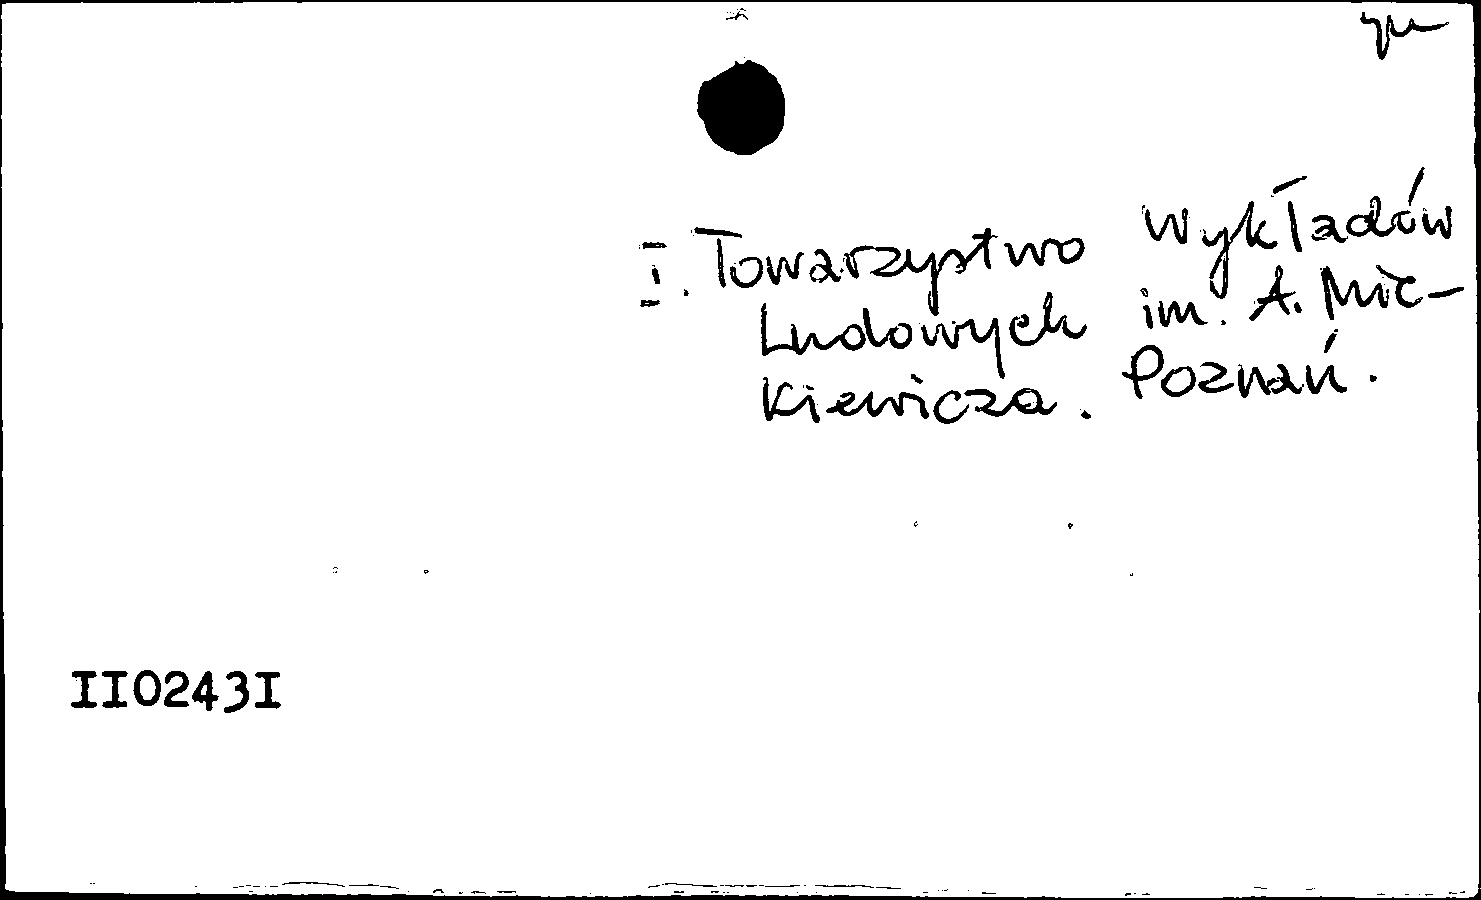 I. Towarzystwo Wykładów
Ludowych im. A. Mic-
kiewicza. Poznań.
IIO243I